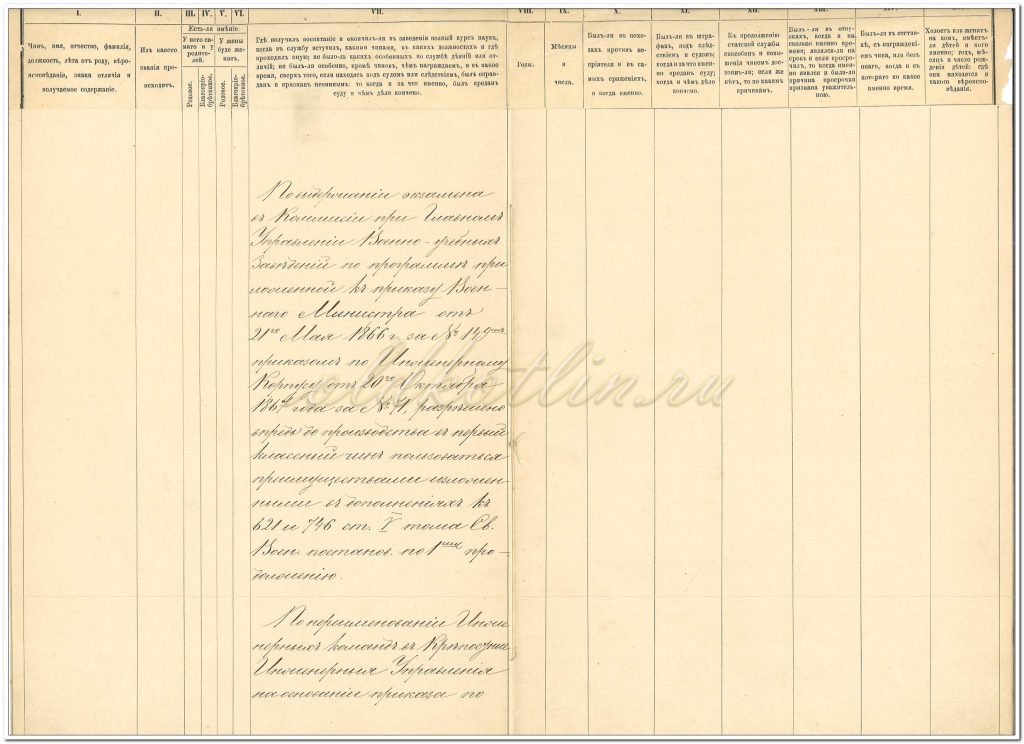 I.
II.
III. IV. V. VI.
VII.
VIII.
IX.
X.
XI.
XII.
Чинъ, имя, отчество, фамилія,
должность, лѣта отъ роду, вѣро-
исповѣданіе, знаки отличія и
получаемое содержаніе.
Изъ какого
званія про-
исходитъ.
Есть-ли имѣніе.
У него са-
маго и у
родите-
лей.
У жены
буде же-
натъ.
Родовое.
Благопріо-
брѣтенное.
Родовое.
Благопріо-
брѣтенное.
Гдѣ получилъ воспитаніе и окончилъ-ли въ заведеніи полный курсъ наукъ,
когда въ службу вступилъ, какими чинами, въ какихъ должностяхъ и гдѣ
проходилъ оную; не было-ли какихъ особенныхъ по службѣ дѣяній или от-
личій; не былъ-ли особенно, кромѣ чиновъ, чѣмъ награждаемъ, и въ какое
время, сверхъ того, если находясь подъ судомъ или слѣдствіемъ, былъ оправ-
данъ и признанъ невиннымъ: то когда и за что именно, былъ преданъ
суду и чѣмъ дѣло кончено.
Годы.
Мѣсяцы
и
числа.
Былъ-ли въ похо-
дахъ противъ не-
пріятеля и въ са-
мыхъ сраженіяхъ,
и когда именно.
Былъ-ли въ штра-
фахъ, подъ слѣд-
ствіемъ и судомъ;
когда и за что имен-
но преданъ суду;
когда и чѣмъ дѣло
кончено.
Къ продолженію
статской службы
способенъ и повы-
шенія чиномъ дос-
тоинъ-ли; если же
нѣтъ, то по какимъ
причинамъ.
Былъ-ли въ отпу-
скахъ, когда и на
сколько именно вре-
мени; являлся-ли на
срокъ и если просро-
чилъ, то когда имен-
но явился и была-ли
причина просрочки
признана уважитель-
ною.
Былъ-ли въ отстав-
кѣ, съ награжденіе-
емъ чина, или безъ
онаго, когда и съ
котораго по какое
именно время.
Холостъ или женатъ
на комъ, имѣетъ-
ли дѣтей и кого
именно; годъ, мѣ-
сяцъ и число рож-
денія дѣтей: гдѣ
они находятся и
какого вѣроиспо-
вѣданія.
По выдержаніи экзамена
въ Коммисіи при Главномъ
Управленіи Военно-учебныхъ
Заведеній по программѣ при
ложенной къ приказу Воен-
наго Министра отъ
21го Мая 1866 г, за №
приказомъ по Инженерному
Корпусу отъ 20го Октября
года за № 71, разрѣшено
впредь до производства въ первый
классный чинъ пользоваться
преимуществами изложен-
ными въ дополненіяхъ къ
621 и 746 ст. V тома Св.
Воен. постанов. по 1му про-
долженію.
По переименованіи Инже
нерныхъ командъ въ Крѣпостныя
Инженерныя Управленія
на основаніи приказа по
oldkotlin.ru